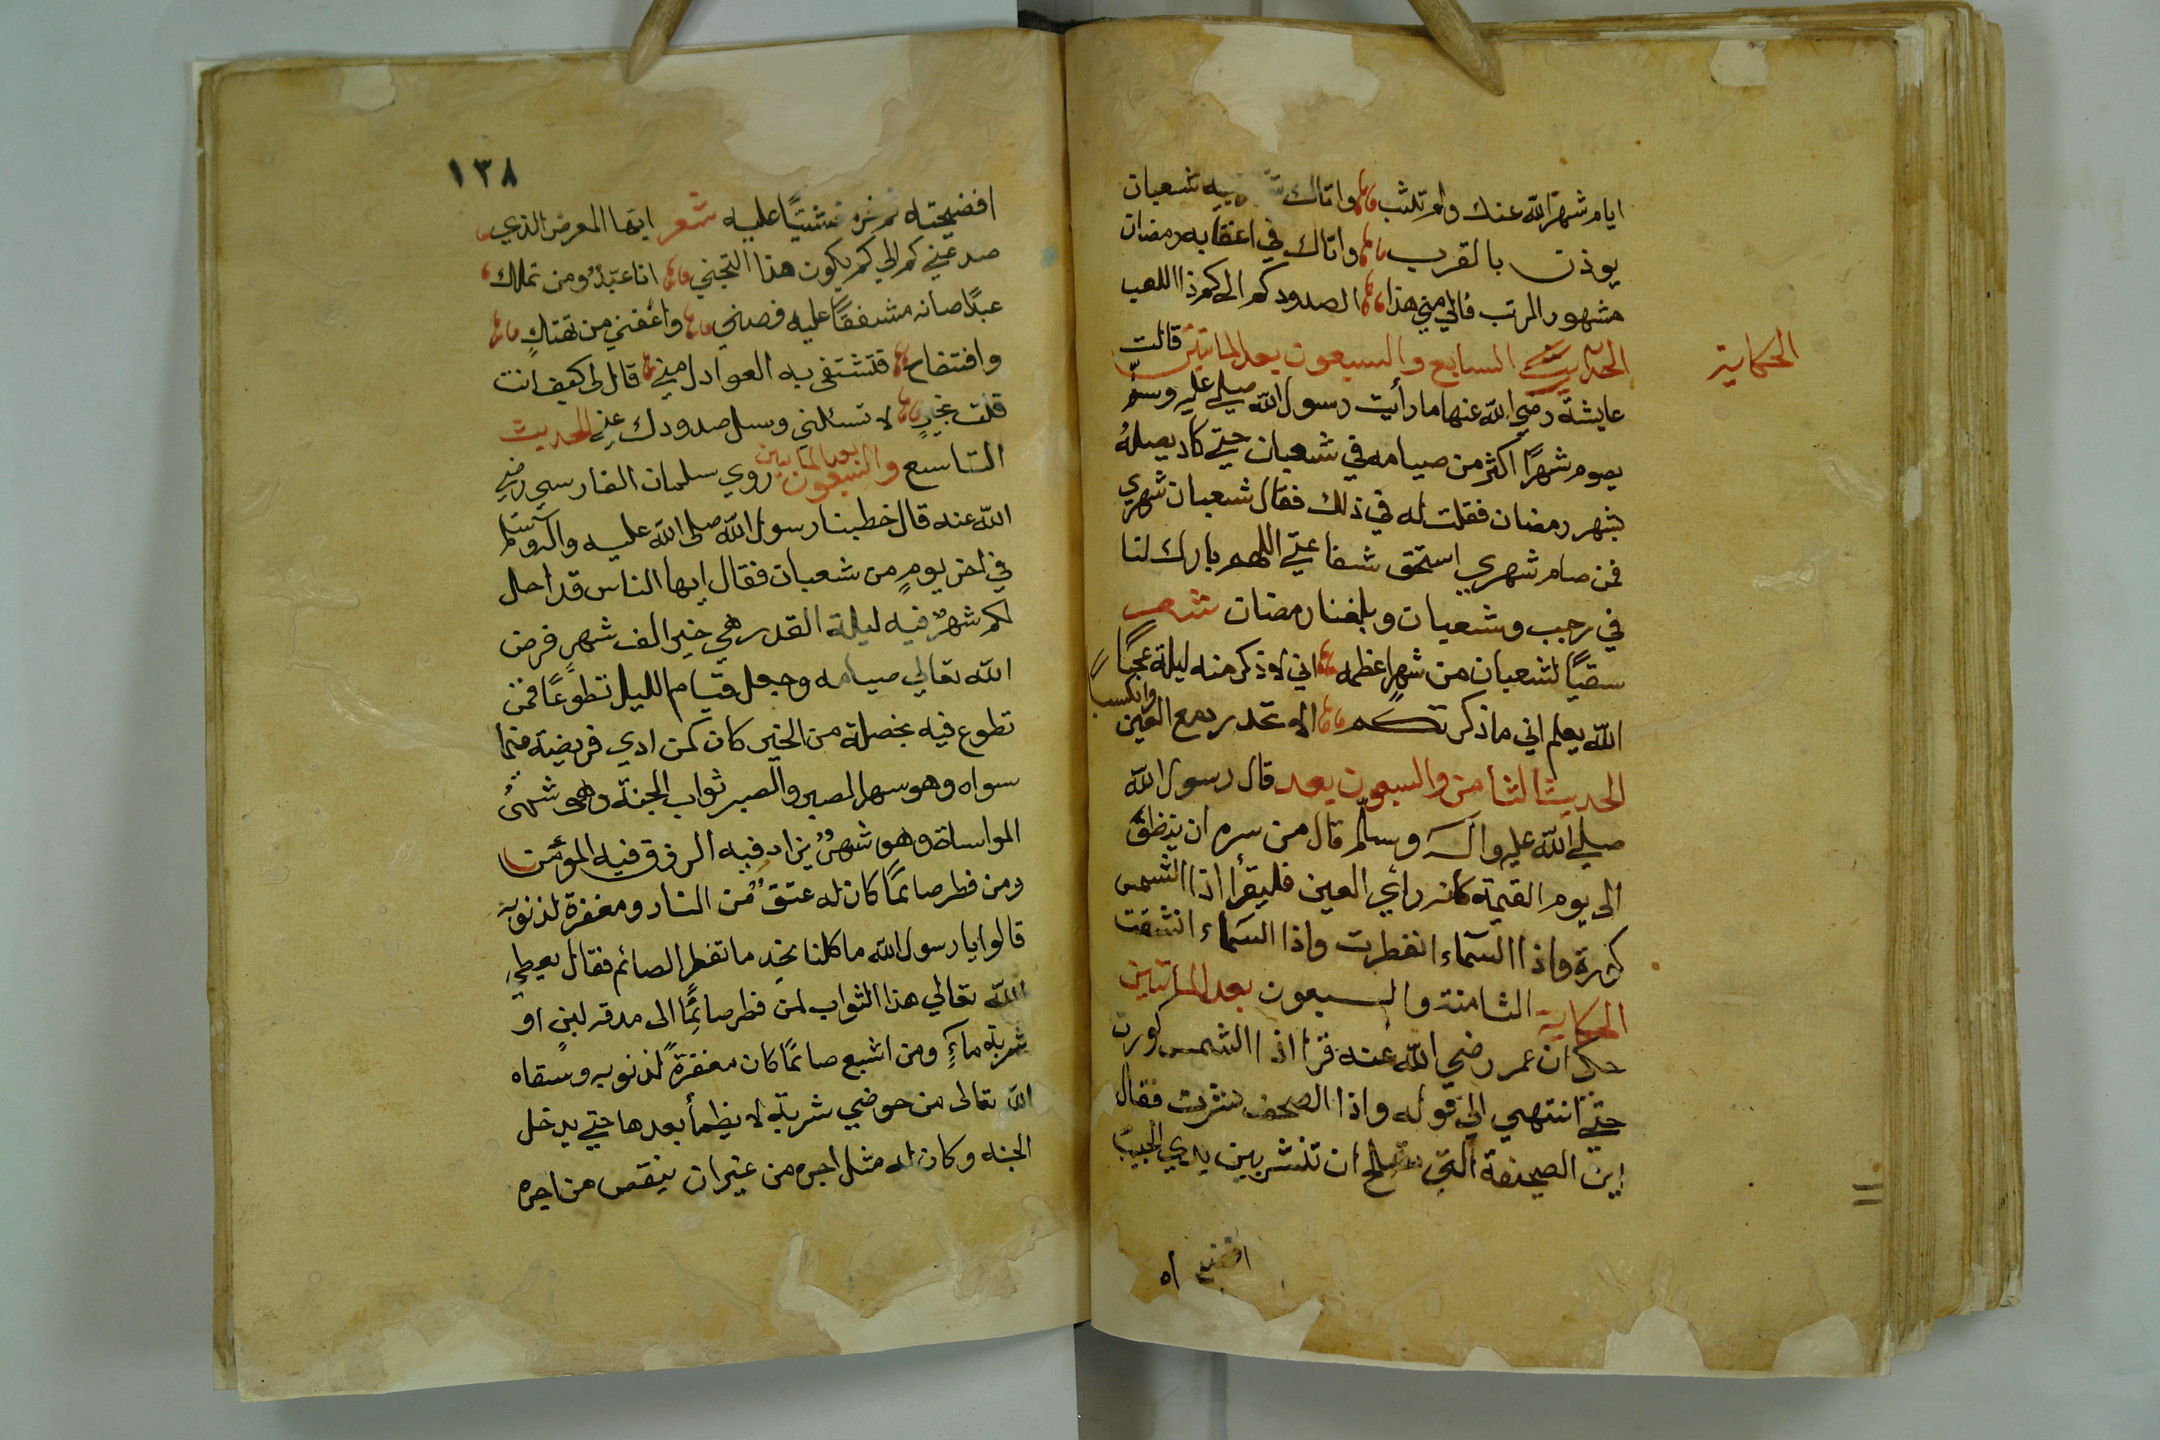 ايام شهر الله عنك ولم تلثب واتاك شعبان
يوذن بالقرب واتاك في اعقابه رمضان
مشهور المرتب فالي مني هذا الصدود كم الى كم ذا اللعب
الحديث السابع والسبعون بعد المايتين قالت
الحكاية
عايشة رضي الله عنها ما رأيت رسول الله صلي عليه وسلم
يصوم شهرًا اكثر من صيامه في شعبان حتي كاد يصلهُ
بشهر رمضان فقلت له في ذلك فقال شعبان شهري
فمن صام شهري استحق شفاعتي اللهم بارك لنا
في رجب وشعبان وبلغنا رمضان شعر
سقيًا لشعبان من شهر اعظمه اني لا ذكر منه ليلة عجبًا
الله يعلم اني ما ذكرتكم الا تحدر دمع العين وانكسبا
الحديث الثامن والسبعون بعد قال رسول الله
صلي الله عليه واله وسلم قال من سره ان ينظر
الى يوم القيمة كانه رأي العين فليقرأ اذا الشمس
كورة واذا السماء انفطرت واذا السماء انشقت
الحكاية الثامنة والسبعون بعد المايتين
حكي ان عمر رضي الله عنه قرا اذا الشمس كورت
حتي انتهي الي قوله واذا الصحف نشرت فقال
اين الصحيفة التي تصلح ان تنشر بين يدي الحبيب
اه
١٣٨
افضيحتاه ثم خر مغشيًا عليه شعر ايها المعرض الذي
صد عني كم الي كم يكون هذا التجني انا عبدٌ ومن تملك
عبدًا صانه مشفقًا عليه فصني واعفني من تهتك
وافتضاح فتشتفي به العواذل مني قال لي كيف انت
قلت بخيرٍ لا تسئلني وسل صدودك عني الحديث
التاسع والسبعون بعد المايتين روي سلمان الفارسي رضي
الله عنه قال خطبنا رسول الله صلى الله عليه وآله وسلم
في اخر يومٍ من شعبان فقال ايها الناس قد احل
لكم شهرٌ فيه ليلة القدر هي خير الف شهرٍ فرض
الله تعالي صيامه وجعل قيام الليل تطوعًا فمن
تطوع فيه بخصلة من الخير كان كمن ادي فريضة فيما
سواه وهو شهر الصبر والصبر ثواب الجنة وهو شهرُ
المواساة وهو شهرٌ يزاد فيه الرزق فيه المؤمن
ومن فطر صائمًا كان له عتقٌ من النار ومغفرة لذنوبه
قالوا يا رسول الله ما كلنا يجد ما تفطر الصائم فقال يعطي
الله تعالي هذا الثواب لمن فطر صائمًا الى مدقه لبنٍ او
شربة ماءٍ ومن اشبع صائمًا كان مغفرةً لذنوبه وسقاه
الله تعالى من حوضي شربة لا يظمأ بعدها حتي يدخل
الجنه وكان له مثل اجره من غير ان ينقص من اجره